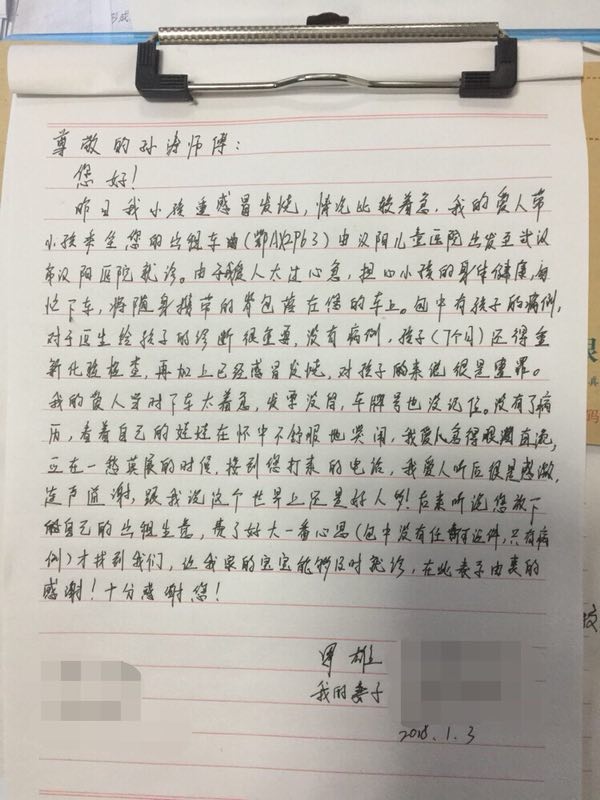 形成
尊敬的孙涛师傅：
您好！
昨日我小孩重感冒发烧，情况比较着急，我的爱人带
小孩乘坐您的出租车由(鄂AX2P63)由汉阳儿童医院出发至武汉
市汉阳医院就诊。由于我爱人太过心急，担心小孩的身体健康，匆
忙下车，将随身携带的背包落在您的车上。包中有孩子的病例，
对于医生给孩子的诊断很重要，没有病例，孩子(7个月)还得重
新化验检查，再加上已经感冒发烧，对孩子的来说很是遭罪。
我的爱人当时下车太着急，发票没留，车牌号也没记住。没有了病
历，看着自己的娃娃在怀中不舒服地哭闹，我爱人急得眼泪直流，
正在一愁莫展的时候，接到您打来的电话，我爱人听后很是感激，
连声道谢，跟我说这个世界上还是好人多！后来听说您放下
自己的出租生意，费了好大一番心思(包中没有任何证件，只有病
例)才找到我们，让我家的宝宝能够及时就诊，在此妻子由衷的
感谢！十分感谢您！
雄
我的妻子
2018.1.3